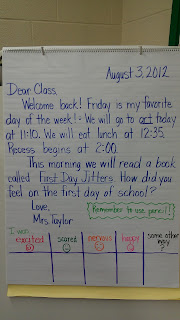 August 3, 2012
Dear Class,
Welcome back! Friday is my favorite
day of the week! We will go to art today
at 11:10. We will eat lunch at 12:35.
Recess begins at 2:00.
This morning we will read a book
called First Day Jitters. How did you
feel on the first day of school?
Love,
Mrs. Taylor
Remember to use pencil!
I was...
excited scared nervous happy some other way?